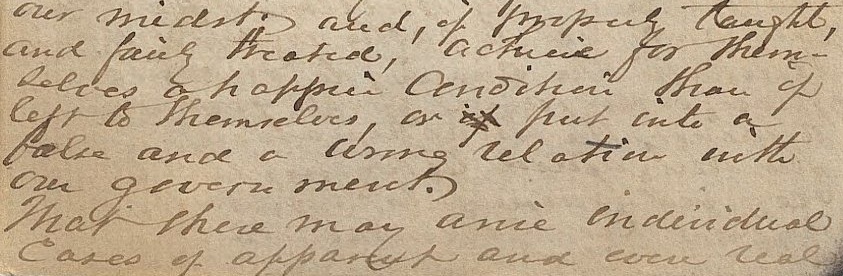 our midst, and, if properly taught,
and fairly treated, achieve for them-
selves a happier Condition than if
left to themselves, or if put into a
false and a wrong relation with
our government.
That there may arise individual
Cases of apparent and even real